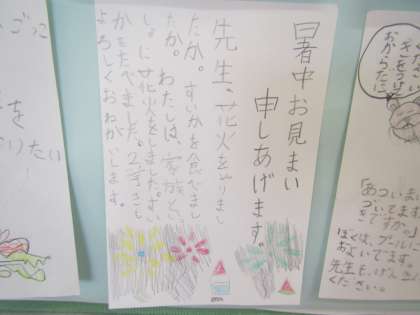 暑中お見まい
申しあげます。
先生、花火をやりまし
たか。すいかを食べまし
たか。わたしは、家族といっ
しょに花火をしました。すい
かもたべました。2学きも
よろしくおねがいします。
ごっこ
を
りたい
おからだに
「あついまい
ついてます
きですか。」
ぼくは、プールで
およいでます。
先生も、げん
ください。